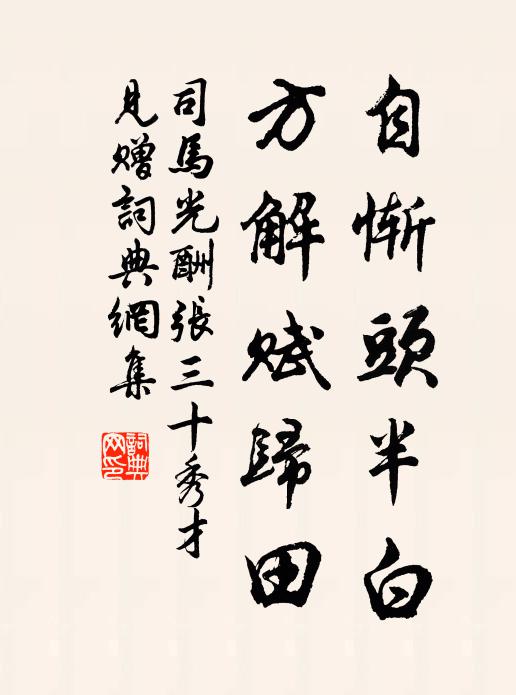 自慚頭半白
方解賦歸田
司馬光酬張三十秀才
見贈詞典網集
詞典網印